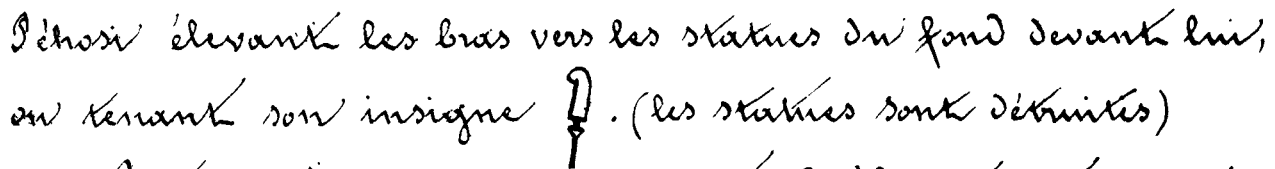 Péhosi élevant les bras vers les statues du fond devant lui,
ou tenant son insigne . (les statues sont détruites)